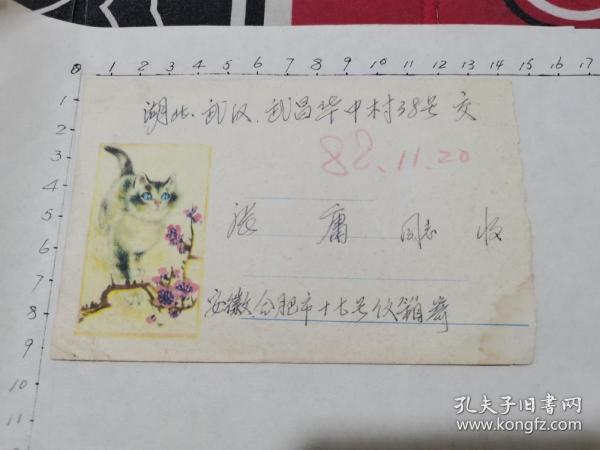 0 1 2 3 4 5 6 7 8 9 10 11 12 13 14 15 16 17
1
2
3
4
5
6
7
8
9
10
11
湖北.武汉.武昌华中村38号交
82.11.20
张庸 同志 收
安徽.合肥市十七号信箱寄
孔夫子旧书网
www.kongfz.com